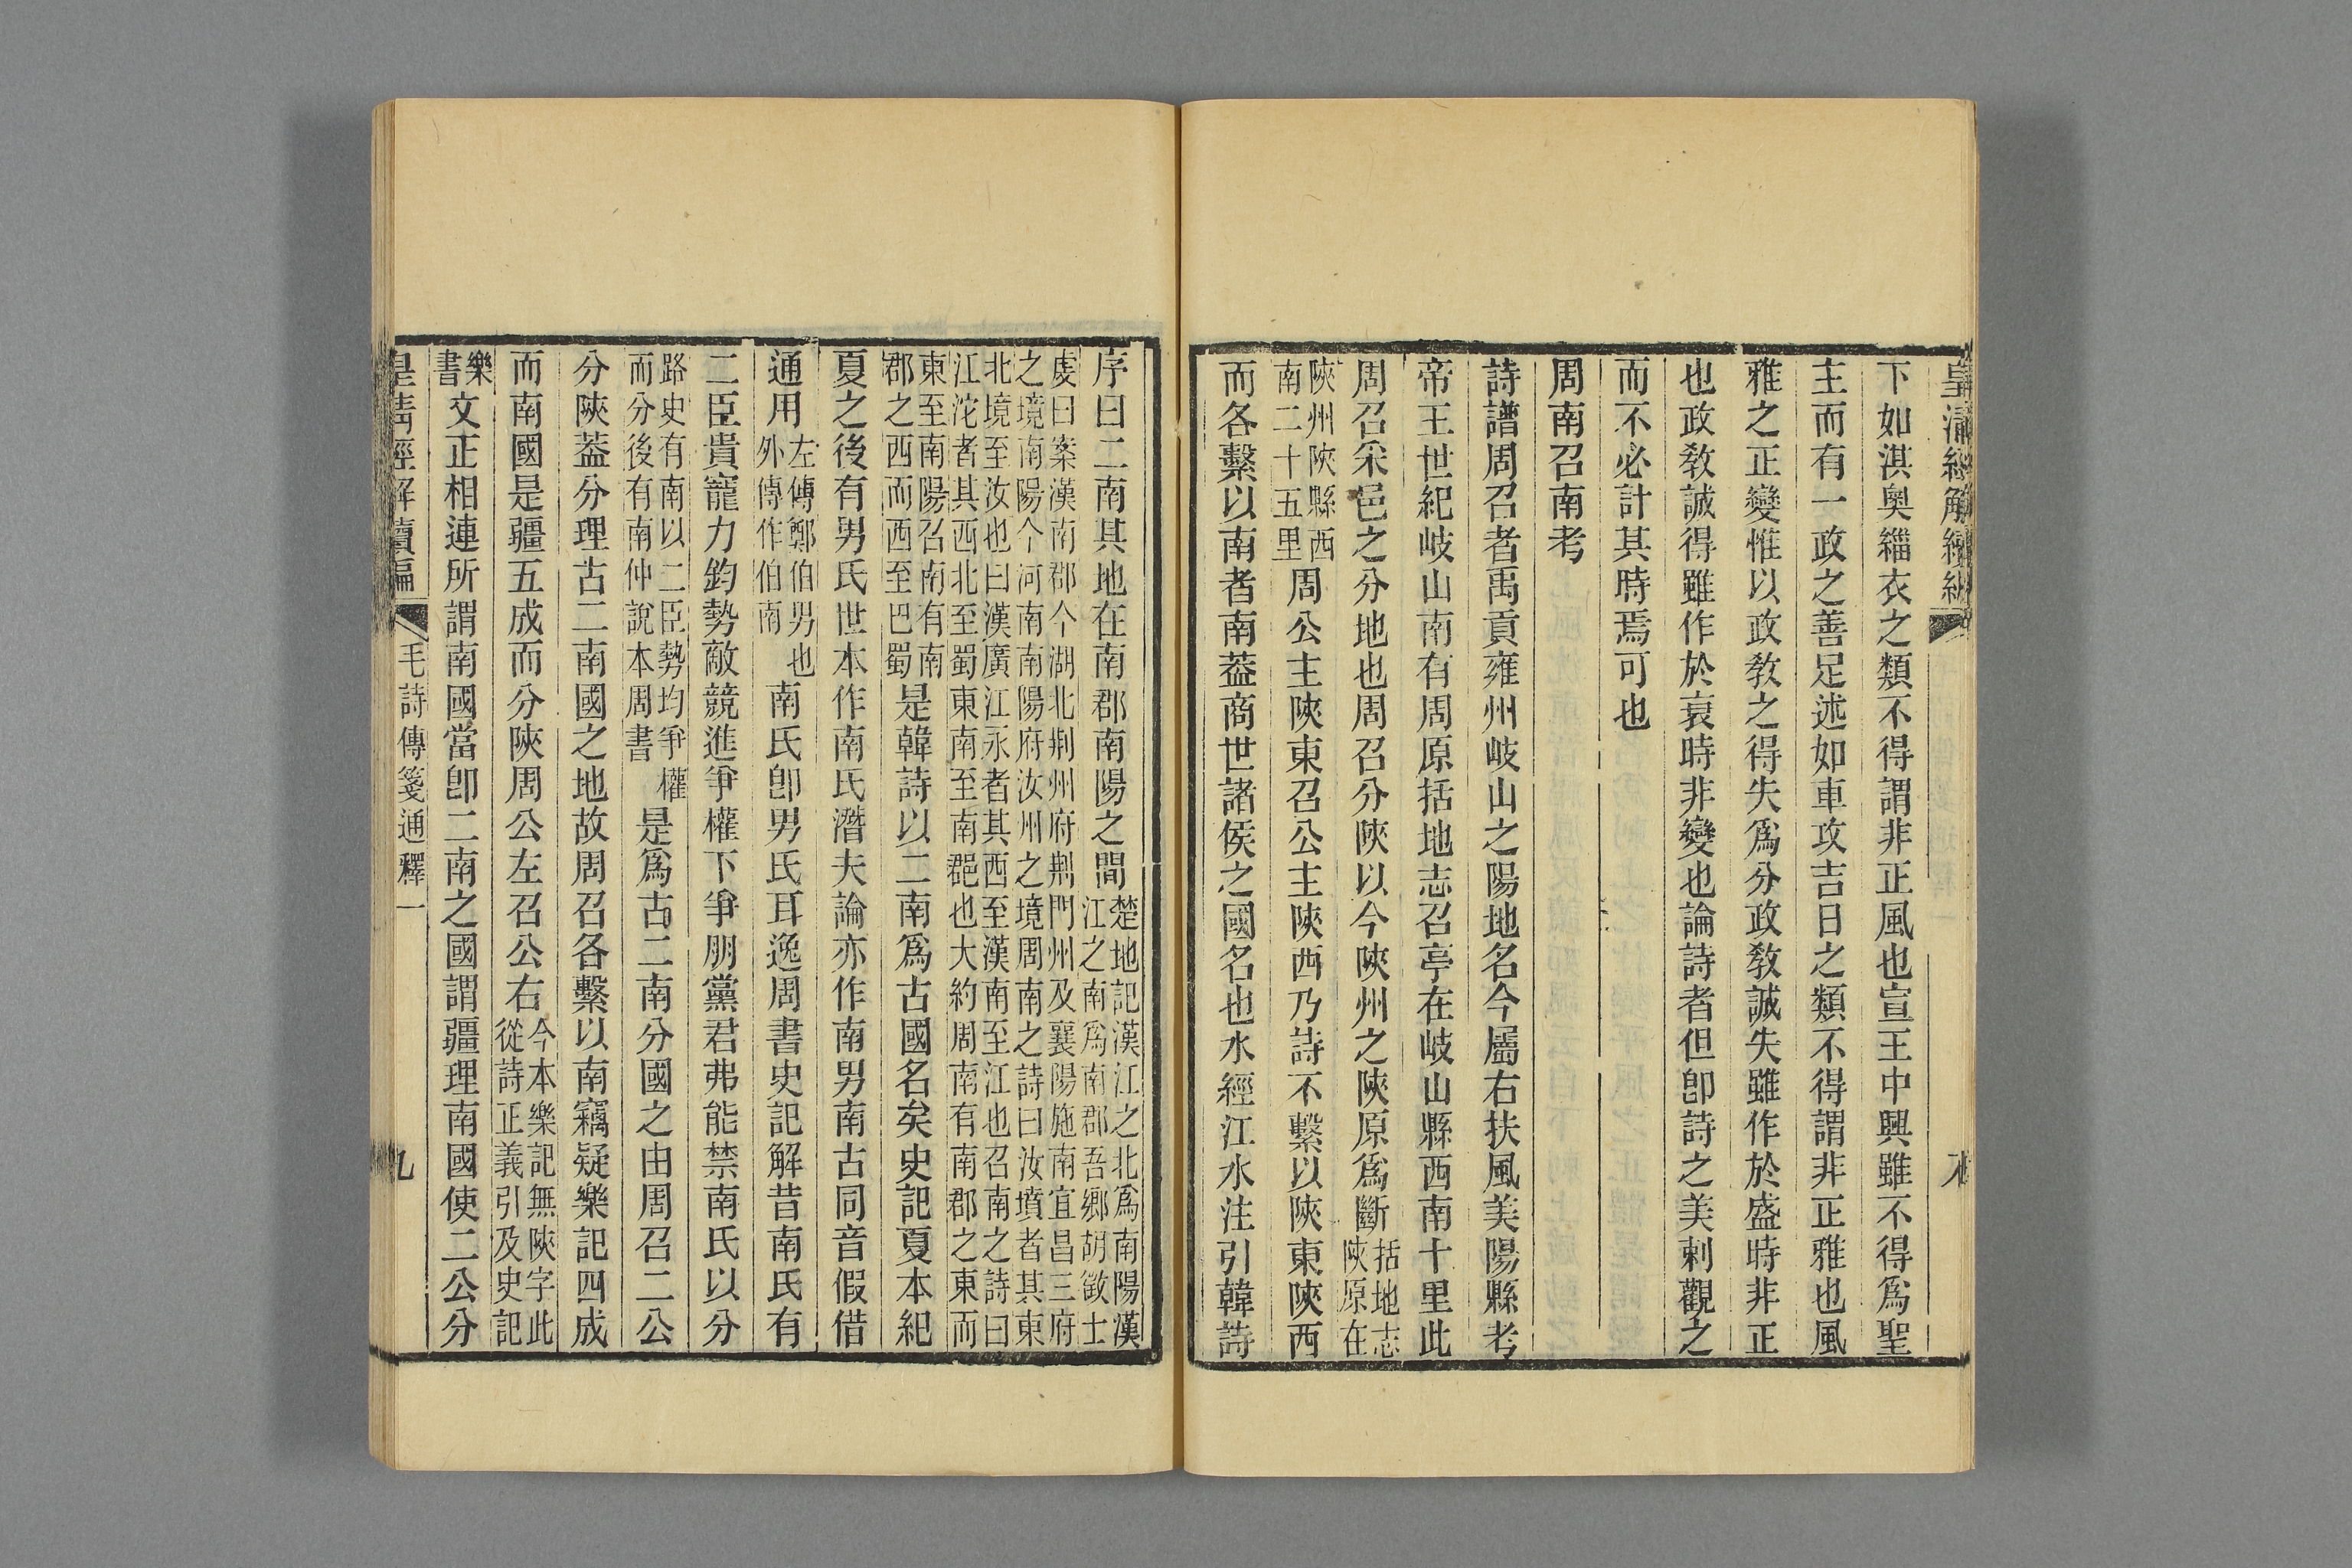 皇清經解續編
下如淇奧緇衣之類不得謂非正風也宣王中興雖不得爲聖
主而有一政之善足述如車攻吉日之類不得謂非正雅也風
雅之正變惟以政敎之得失爲分政敎誠失雖作於盛時非正
也政敎誠得雖作於衰時非變也論詩者但卽詩之美刺觀之
而不必計其時焉可也
周南召南考
詩譜周召者禹貢雍州岐山之陽地名今屬右扶風美陽縣考
帝王世紀岐山南有周原括地志召亭在岐山縣西南十里此
周召采邑之分地也周召分陝以今陝州之陝原爲斷括地志陝原在
陝州陝縣西南二十五里周公主陝東召公主陝西乃詩不繫以陝東陝西
而各繫以南者南葢商世諸侯之國名也水經江水注引韓詩
序曰二南其地在南郡南陽之間楚地記漢江之北爲南陽漢江之南爲南郡吾鄉胡徵士
虔曰案漢南郡今湖北荆州府荆門州及襄陽施南宜昌三府之境南陽今河南南陽府汝州之境周南之詩曰汝墳者其東
北境至汝也曰漢廣江永者其西至漢南至江也召南之詩曰江沱者其西北至蜀東南至南郡也大約周南有南郡之東而
東至南陽召南有南郡之西而西至巴蜀是韓詩以二南爲古國名矣史記夏本紀
夏之後有男氏世本作南氏潛夫論亦作南男南古同音假借
通用左傳鄭伯男也外傳作伯南南氏卽男氏耳逸周書史記解昔南氏有
二臣貴寵力鈞勢敵競進爭權下爭朋黨君弗能禁南氏以分
路史有南以二臣勢均爭權而分後有南仲說本周書是爲古二南分國之由周召二公
分陝葢分理古二南國之地故周召各繫以南竊疑樂記四成
而南國是疆五成而分陝周公左召公右今本樂記無陝字此從詩正義引及史記
樂書文正相連所謂南國當卽二南之國謂疆理南國使二公分
皇清經解續編 毛詩傳箋通釋一 九